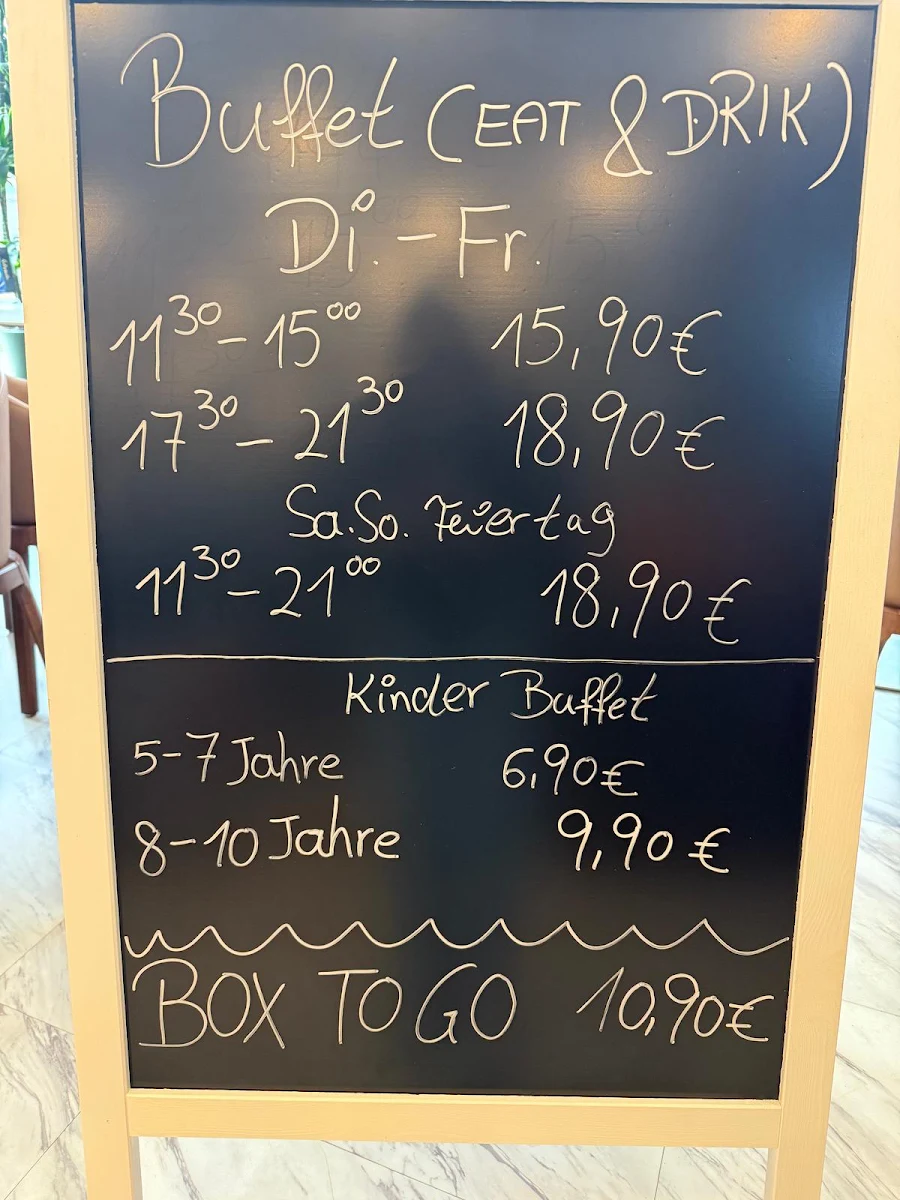 Buffet (EAT & DRIK)
Di. - Fr.
11³⁰ - 15⁰⁰ 15,90 €
17³⁰ - 21³⁰ 18,90 €
Sa. So. Feiertag
11³⁰ - 21⁰⁰ 18,90 €
Kinder Buffet
5-7 Jahre 6,90 €
8-10 Jahre 9,90 €
BOX TO GO 10,90 €